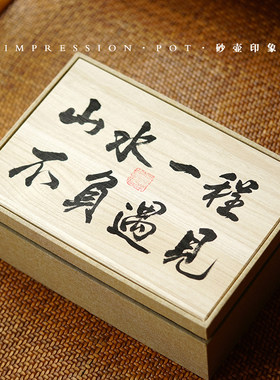 IMPRESSION · POT · 砂壶印象
山水一程
不負遇見